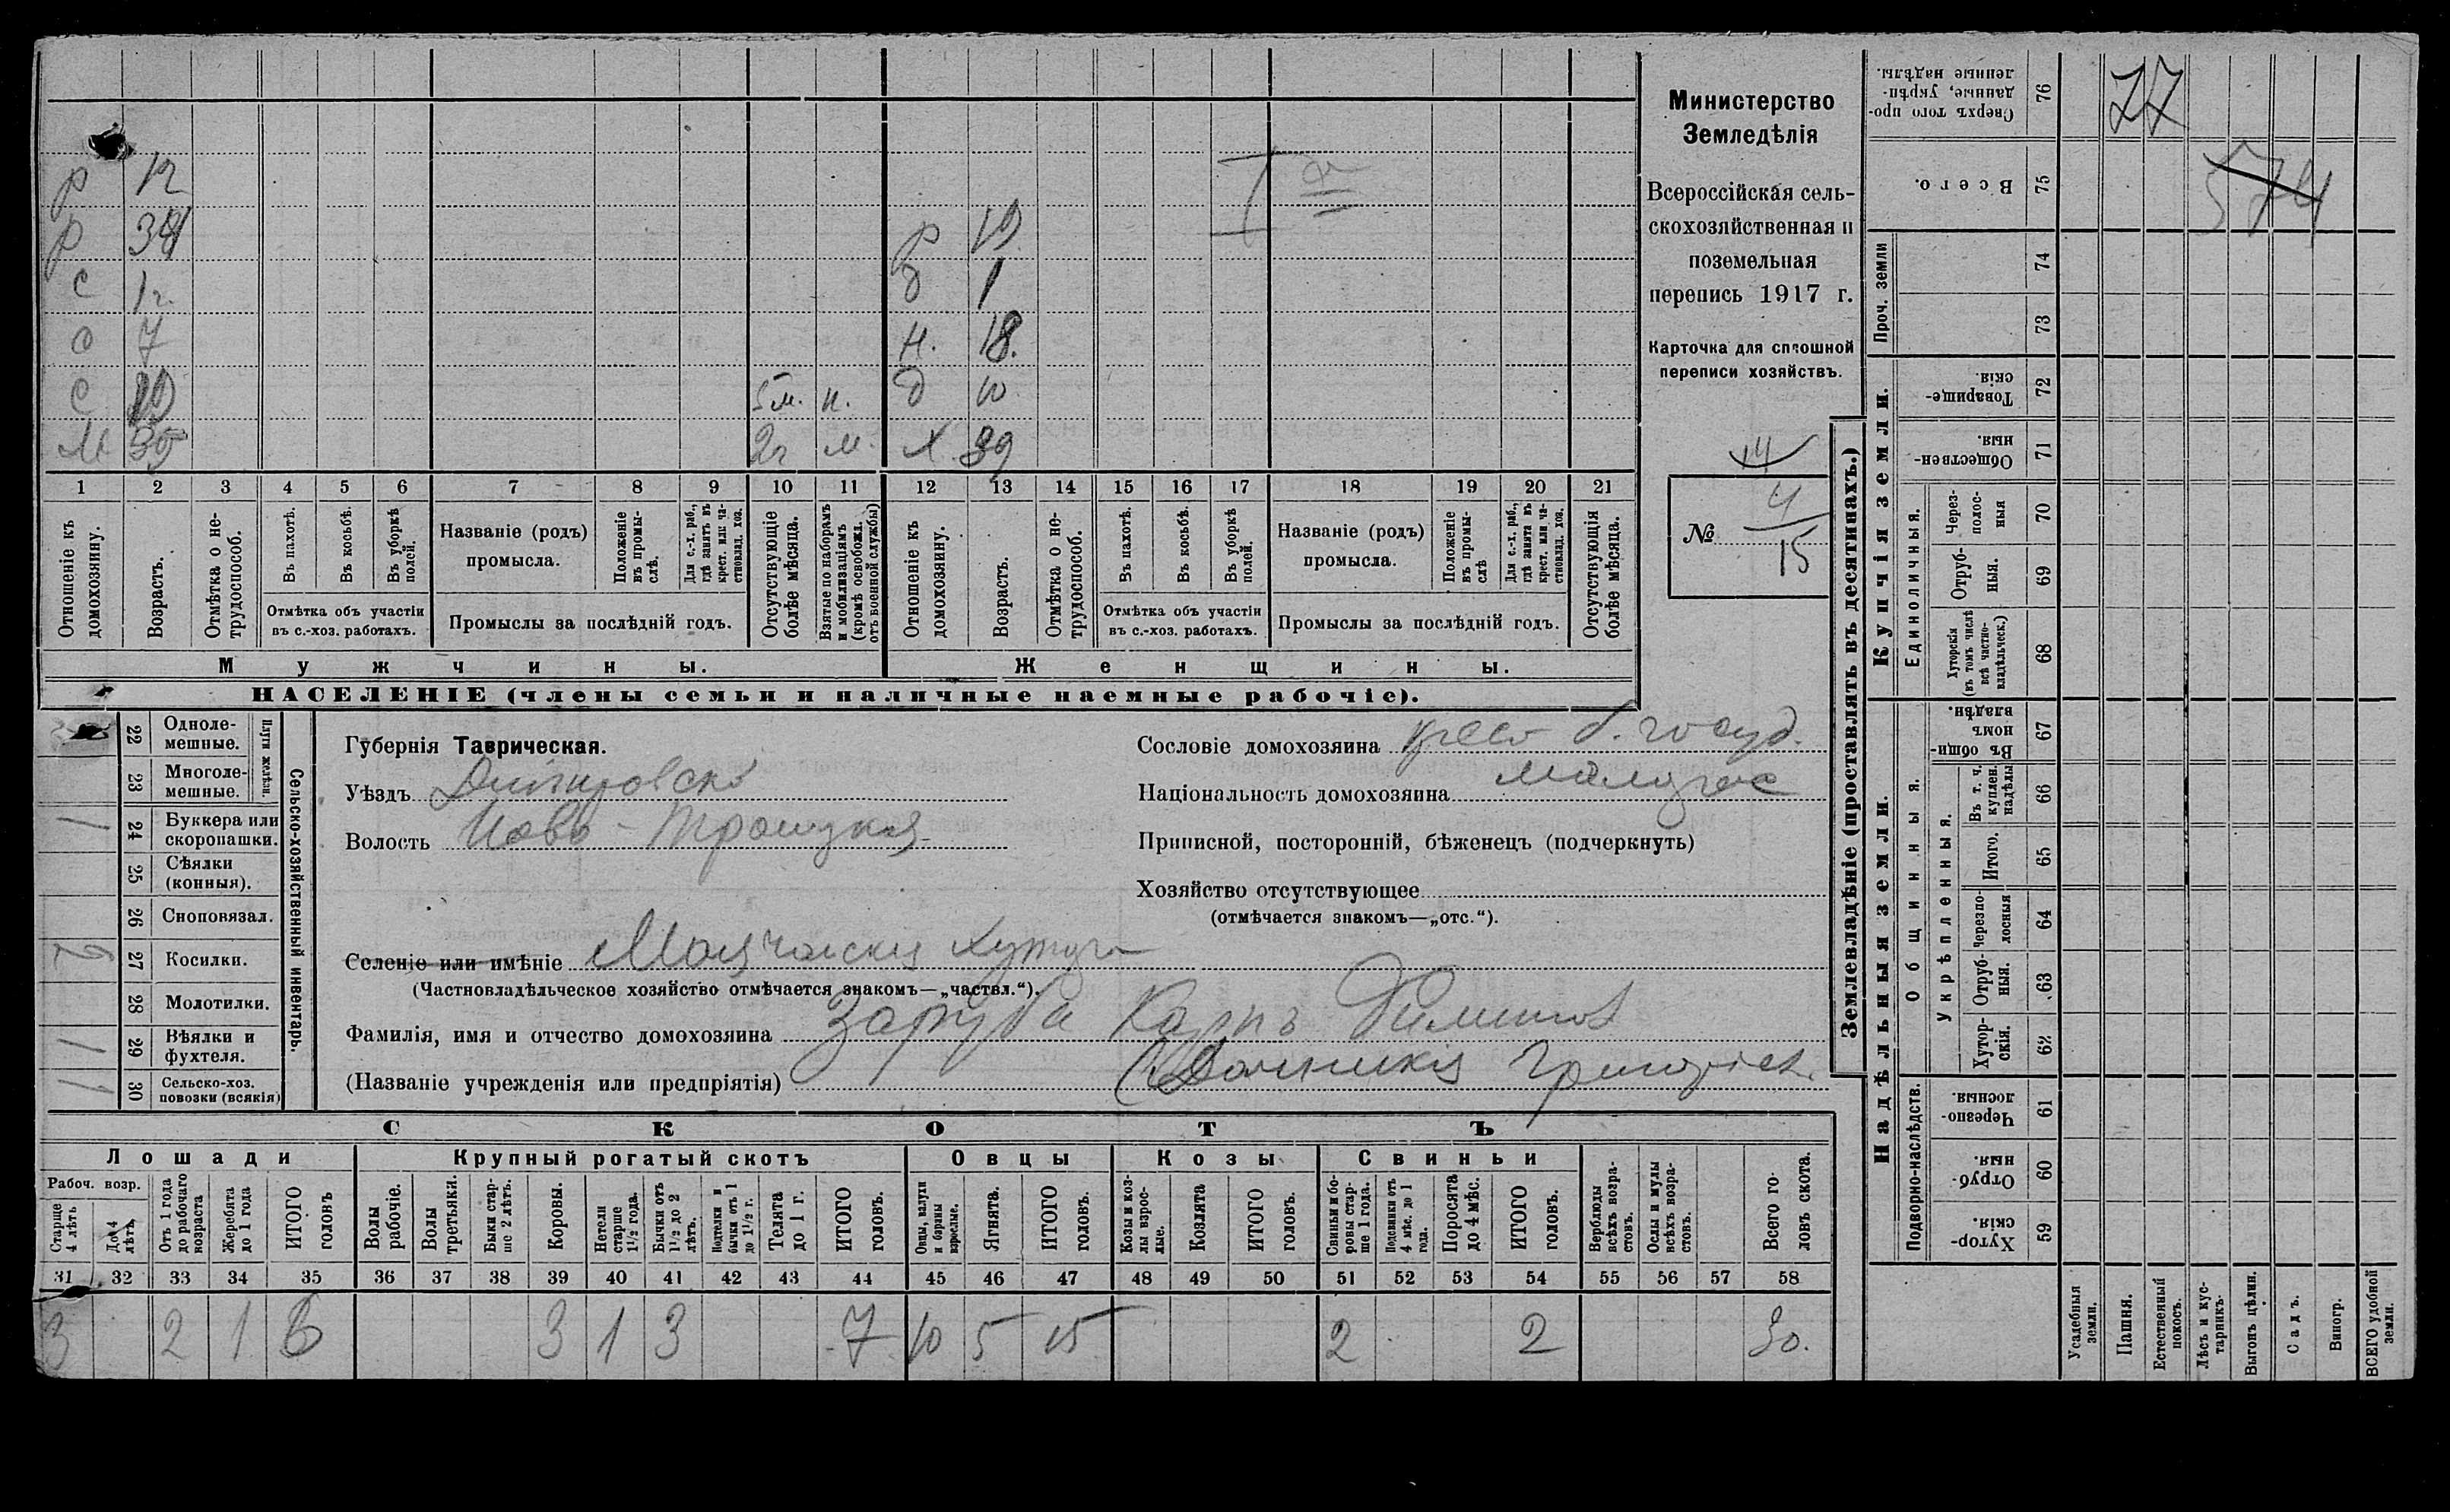 р 12
р 38
с 12.
с 7
с 10 5 м. н.
м 39 2г м.
р 19
д 1
н. 18.
д 10
х. 39
1 2 3 4 5 6 7 8 9 10 11 12 13 14 15 16 17 18 19 20 21
Отношеніе къ домохозяину.
Возрастъ.
Отмѣтка о не-трудоспособ.
Въ пахотѣ.
Въ косьбѣ.
Въ уборкѣ полей.
Отмѣтка объ участіи
въ с.-хоз. работахъ.
Названіе (родъ)
промысла.
Положеніе въ промы-слѣ.
Для с.-х. раб., гдѣ занятъ въ крест. или ча-стновлад. хоз.
Промыслы за послѣдній годъ.
Отсутствующіе болѣе мѣсяца.
Взятые по наборамъ и мобилизаціямъ (кромѣ освобожд. отъ военной службы)
Отношеніе къ домохозяину.
Возрастъ.
Отмѣтка о не-трудоспособ.
Въ пахотѣ.
Въ косьбѣ.
Въ уборкѣ полей.
Отмѣтка объ участіи
въ с.-хоз. работахъ.
Названіе (родъ)
промысла.
Положеніе въ промы-слѣ
Для с.-х. раб., гдѣ занята въ крест. или ча-стновлад. хоз.
Промыслы за послѣдній годъ.
Отсутствующія болѣе мѣсяца.
Мужчины.
Женщины.
НАСЕЛЕНІЕ (члены семьи и наличные наемные рабочіе).
Министерство
Земледѣлія
Всероссійская сель-
скохозяйственная и
поземельная
перепись 1917 г.
Карточка для сплошной
переписи хозяйствъ.
14
№ 4
15
22 Одноле-мешные.
23 Многоле-мешные.
Плуги желѣзн.
24 Буккера или скоропашки. 1
25 Сѣялки (конныя).
26 Сноповязал.
27 Косилки. 2
28 Молотилки.
29 Вѣялки и фухтеля. 1
30 Сельско-хоз. повозки (всякія) 1
Сельско-хозяйственный инвентарь.
Губернія Таврическая.
Уѣздъ Днѣпровскі
Волость Ново-Троицкая
Селеніе или имѣніе Маячскія хутора
(Частновладѣльческое хозяйство отмѣчается знакомъ—„частвл.“).
Фамилія, имя и отчество домохозяина Заруба Карпъ
(Названіе учрежденія или предпріятія)
Сословіе домохозяина крест. б. госуд.
Національность домохозяина малорос
Приписной, посторонній, бѣженецъ (подчеркнуть)
Хозяйство отсутствующее
(отмѣчается знакомъ—„отс.“).
СКОТЪ
Лошади
Крупный рогатый скотъ
Овцы
Козы
Свиньи
Рабоч. возр.
Старше 4 лѣтъ
До 4 лѣтъ
Отъ 1 года до рабочаго возраста
Жеребята до 1 года
ИТОГО головъ
Волы рабочіе.
Волы третьяки.
Быки стар-ше 2 лѣтъ.
Коровы.
Нетели старше 1 1/2 года.
Бычки отъ 1 1/2 до 2 лѣтъ.
Подтелки и бычки отъ 1 до 1 1/2 г.
Телята до 1 г.
ИТОГО головъ.
Овцы, валухи и бараны взрослые.
Ягнята.
ИТОГО головъ.
Козы и коз-лы взрос-лые.
Козлята
ИТОГО головъ.
Свиньи и бо-ровы стар-ше 1 года.
Подсвинки отъ 4 мѣс. до 1 года.
Поросята до 4 мѣс.
ИТОГО головъ.
Верблюды всѣхъ возра-стовъ.
Ослы и мулы всѣхъ возра-стовъ.
Всего го-ловъ скота.
31 32 33 34 35 36 37 38 39 40 41 42 43 44 45 46 47 48 49 50 51 52 53 54 55 56 57 58
3 2 1 6 3 1 3 7 10 5 15 2 2 30.
Землевладѣніе (проставлять въ десятинахъ.)
Надѣльныя земли.
Купчія земли.
Проч. земли
Подворно-наслѣдств.
Общинныя.
Укрѣпленныя.
Единоличныя.
Сверхъ того про-данные, укрѣп-ленные надѣлы. 76
Всего. 75
74
73
Товарище-скія. 72
Обществен-ныя. 71
Через-полос-ныя 70
Отруб-ныя. 69
Хуторскія (въ томъ числѣ всѣ частно-владѣльческ.) 68
Въ общи-номъ владѣн. 67
Въ т. ч. куплен. надѣлы 66
Итого. 65
Черезпо-лосныя 64
Отруб-ныя. 63
Хутор-скія. 62
Черезпо-лосныя. 61
Отруб-ныя. 60
Хутор-скія. 59
Усадебныя земли.
Пашня.
Естественный покосъ.
Лѣсъ и кус-тарникъ.
Выгонъ цѣлин.
Садъ.
Виногр.
ВСЕГО удобной земли.
77
574